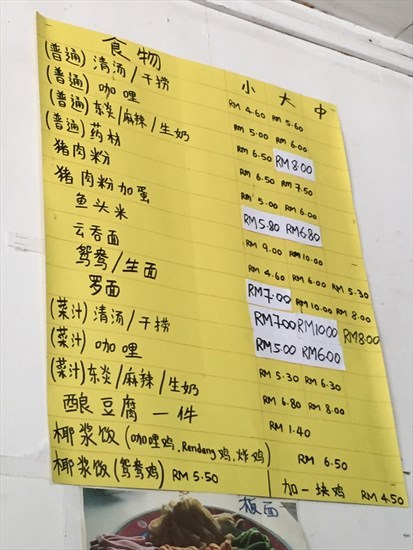 食物 小 大 中
(普通) 清汤/干捞 RM 4.60 RM 5.60
(普通) 咖哩 RM 5.00 RM 6.00
(普通) 东炎/麻辣/生奶 RM 6.50 RM 8.00
(普通) 药材 RM 6.50 RM 7.50
猪肉粉 RM 5.00 RM 6.00
猪肉粉加蛋 RM 5.80 RM 6.80
鱼头米 RM 9.00 RM 10.00
云吞面 RM 4.60 RM 6.00 RM 5.30
鸳鸯/生面 RM 7.00 RM 10.00 RM 8.00
罗面 RM 7.00 RM 10.00 RM 8.00
(菜汁) 清汤/干捞 RM 5.00 RM 6.00
(菜汁) 咖哩 RM 5.30 RM 6.30
(菜汁) 东炎/麻辣/生奶 RM 6.80 RM 8.00
酿豆腐一件 RM 1.40
椰浆饭 (咖哩鸡, Rendang 鸡, 炸鸡) RM 6.50
椰浆饭 (鸳鸯鸡) RM 5.50 加一块鸡 RM 4.50
板面